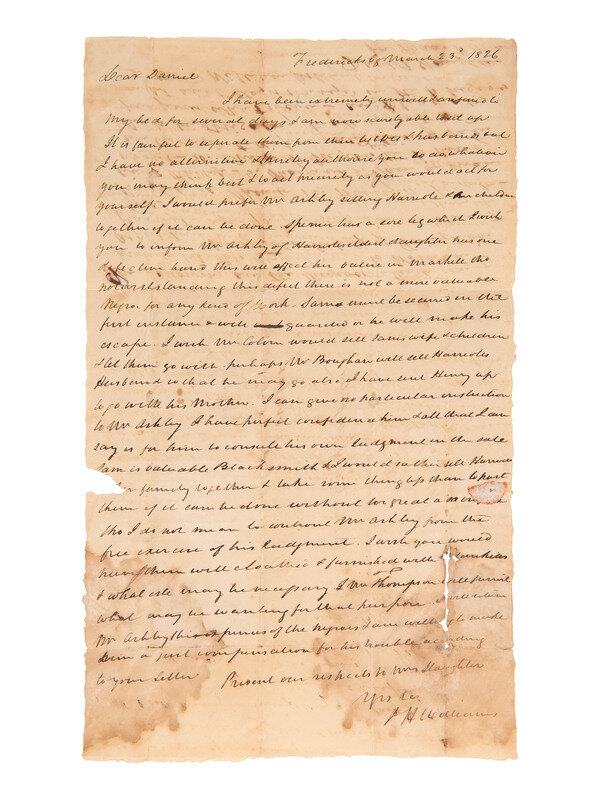 Fredericksbg March 23d 1826
Dear Daniel
I have been extremely unwell & confined to
my bed for several days I am now scarcely able to sit up
It is painful to seperate them from their wives & husbands but
I have no alternitive I hereby authorise you to do whatever
you may think best & to act precisely as you would act for
yourself. I would prefer Mr Ashby selling Harriote & her children
together if it can be done. Spencer has a sore leg which I wish
you to inform Mr Ashby of Harriotes eldest daughter has one
defective hand this will effect her value in market tho
notwithstanding this defect there is not a more valuable
Negro for any kind of work. Sam must be secured in the
first instance & well guarded or he will make his
escape. I wish Mr Colvin would sell Sams wife & children
& let them go with perhaps Mr Boughan will sell Harriotes
Husband so that he may go also I have sent Henry up
to go with his Mother. I can give no particular instruction
to Mr Ashby I have perfect confidence in him & all that I can
say is for him to consult his own Judgment in the sale
Sam is valuable Blacksmith & I would rather sell Harriote
& her family together & take something less than to part
them if it can be done without too great a sacrifice
tho I do not mean to controul Mr Ashby from the
free exercise of his Judgment. I wish you would
have them well cloathed & furnished with Blankets
& what else may be necessary & Mr Thompson will furnish
what may be wanting for that purpose.
Mr Ashby the expences of the negroes I am willing to make
him a just compensation for his trouble according
to your Letter Present our respects to Mrs Slaughter
Yrs &c
J H Williams